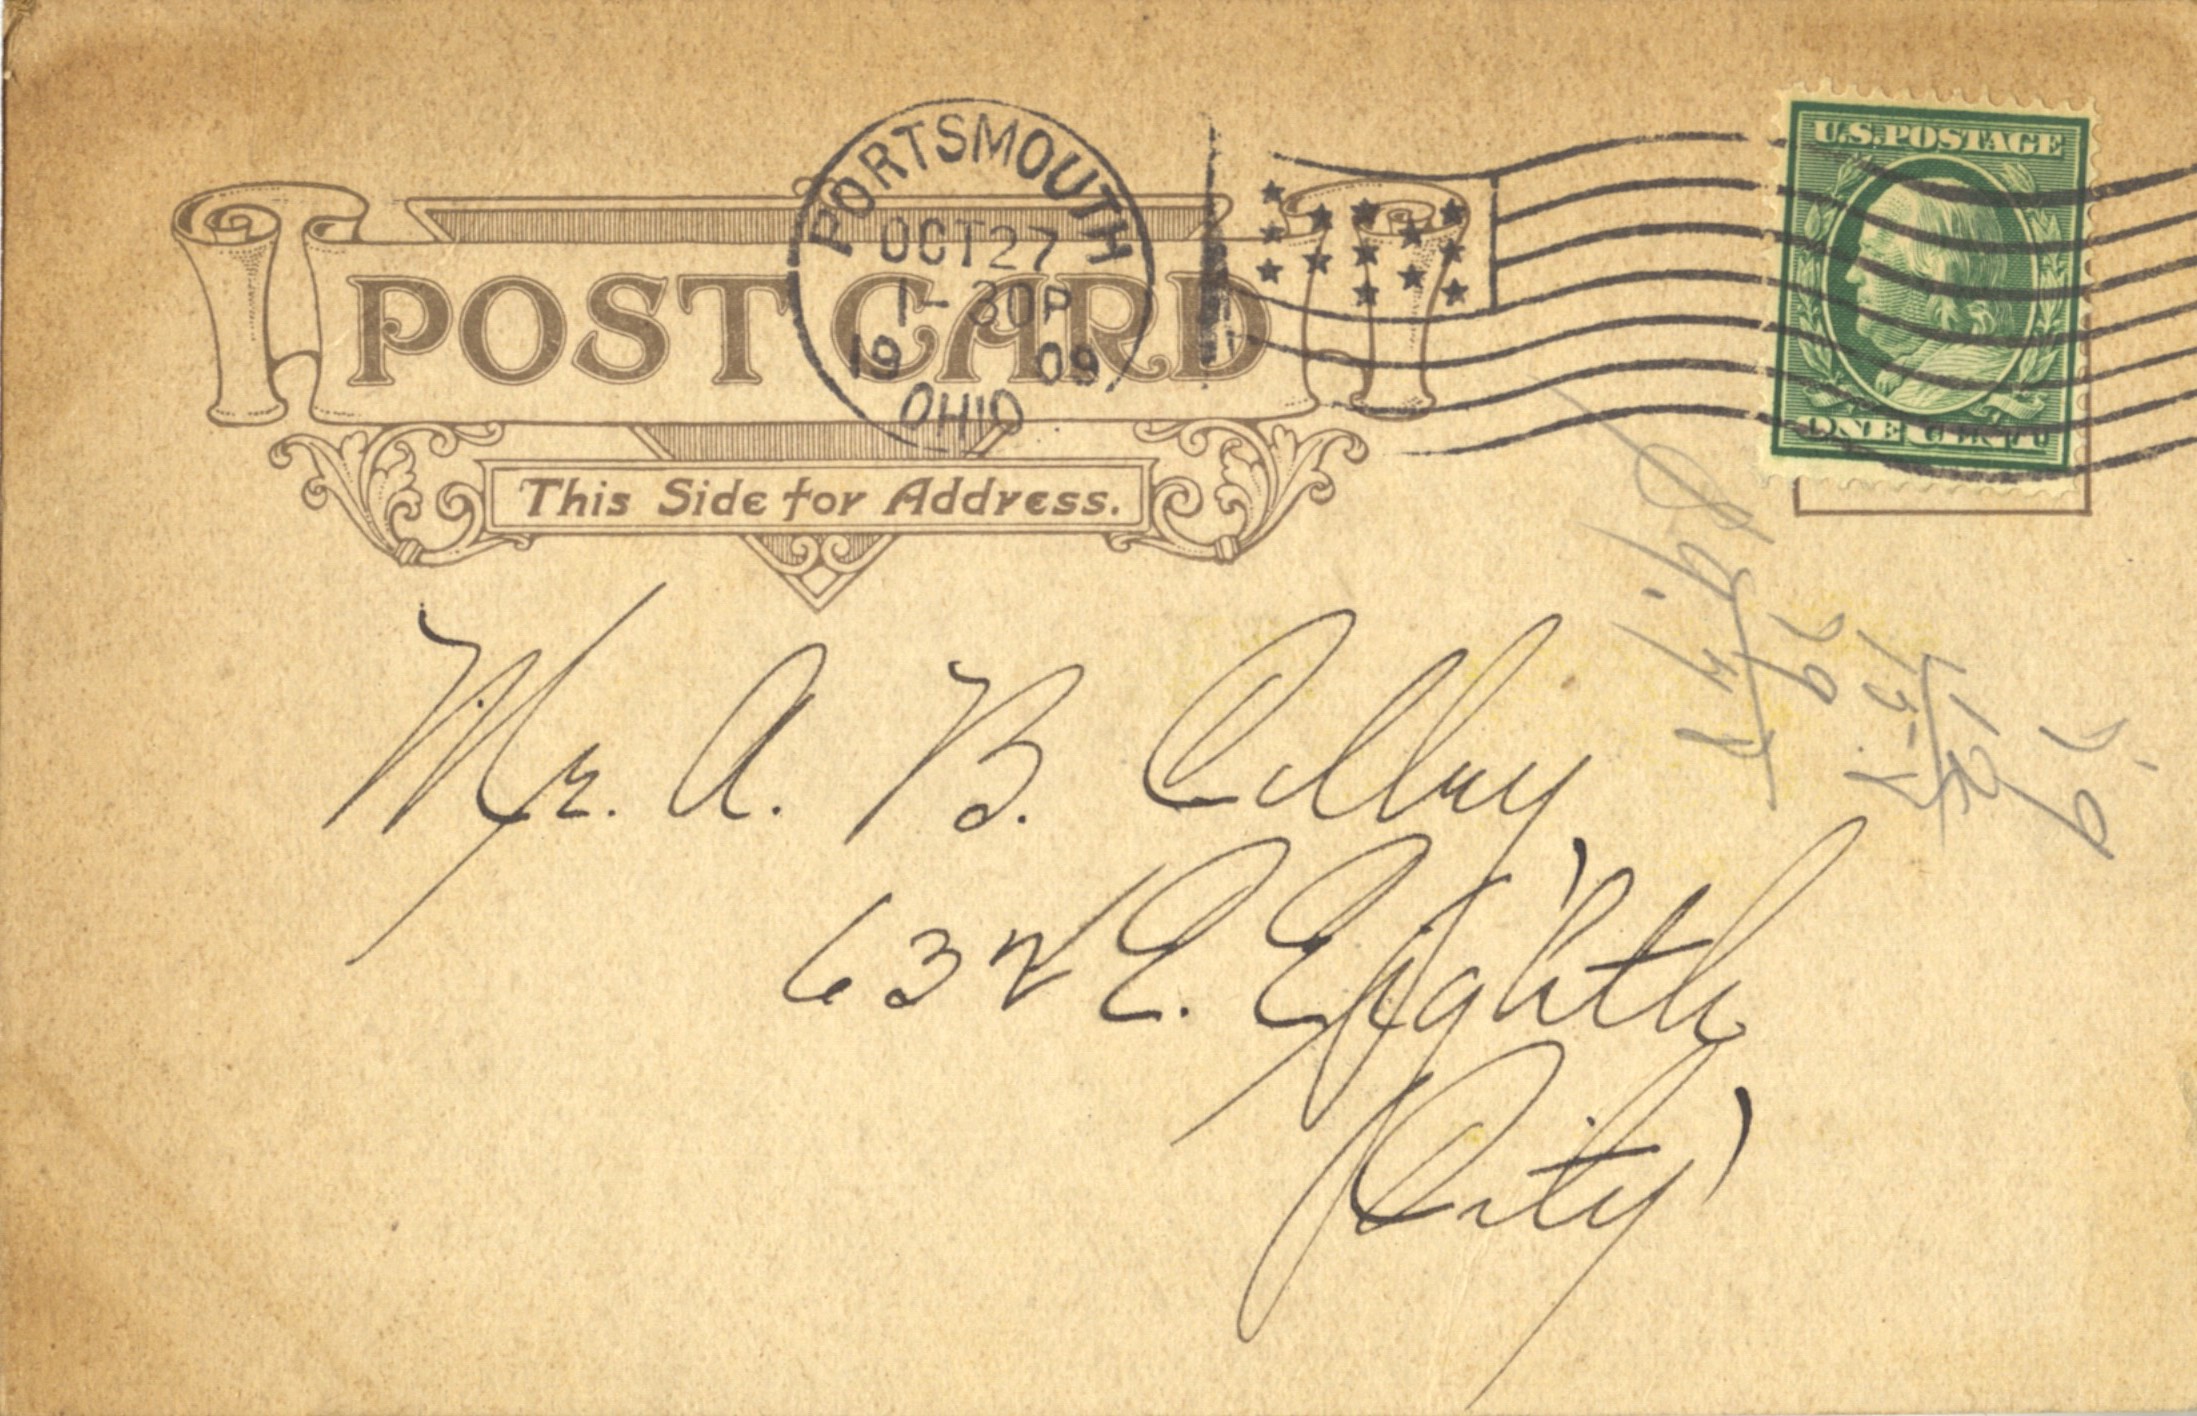 PORTSMOUTH
OCT 27
1-30P
19 09
OHIO
U.S. POSTAGE
ONE CENT
POST CARD
This Side for Address.
Mr. A. B. Colby
632 E. Eighth
City